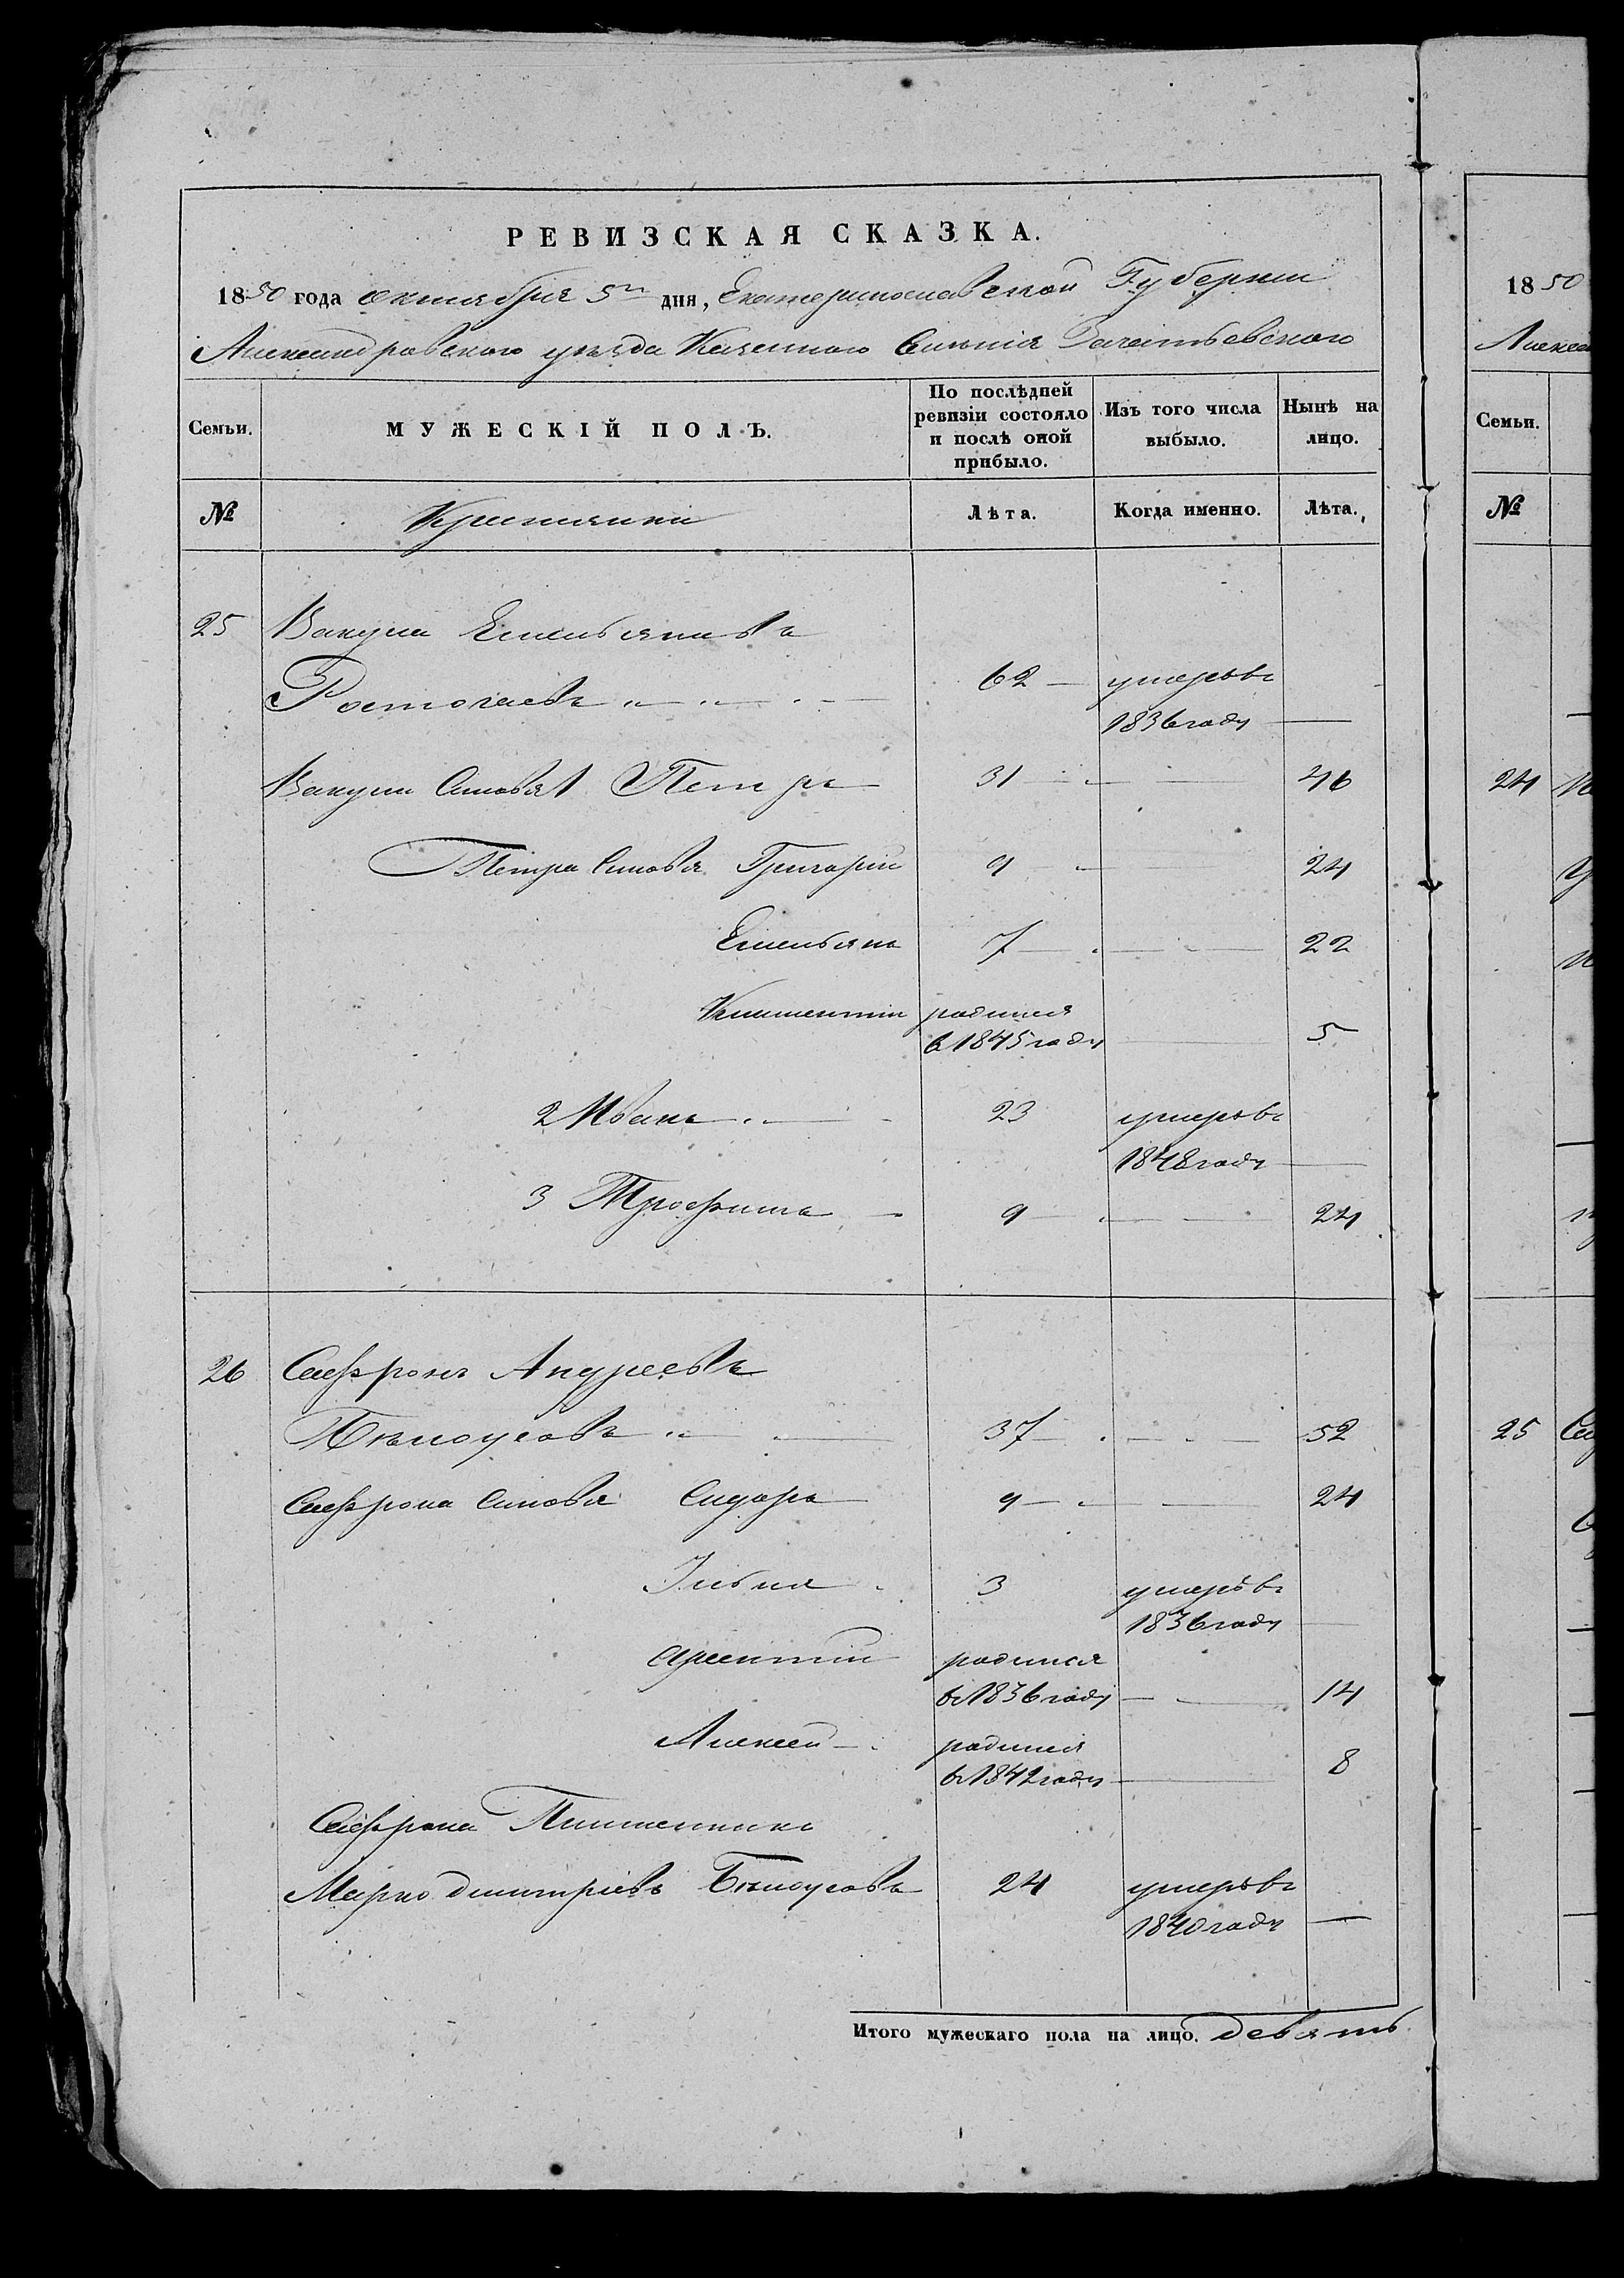 РЕВИЗСКАЯ СКАЗКА.
1850 года октября 5го дня, Екатеринославской Губернии
Александровского уезда Казенного Сѣлѣния Зачатьевского
Семьи. МУЖЕСКІЙ ПОЛЪ. По послѣдней ревизіи состояло и послѣ оной прибыло. Изъ того числа выбыло. Нынѣ на лицо.
№ Крестьяни Лѣта. Когда именно. Лѣта.
25 Вакула Емельяновъ
Ростогаевъ 62 умеръ въ
1836 году
Вакулы Сыновья 1 Петръ 31 46
Петра Сыновья Григорий 9 24
Емельянъ 7 22
Климентий родился
в 1845 году 5
2 Иванъ 23 умеръ въ
1848 году
3 Трофимъ 9 24
26 Сафронъ Андреевъ
Бѣлоусовъ 37 52
Сафрона Сыновья Сидоръ 9 24
Илья 3 умеръ въ
1836 году
Арсентий родился
въ 1836 году 14
Алексей родился
въ 1842 году 8
Сафрона Племянникъ
Марко Дмитриевъ Бѣлоусовъ 24 умеръ въ
1840 году
Итого мужескаго пола на лицо. девять
1850
Семьи.
№
24
25